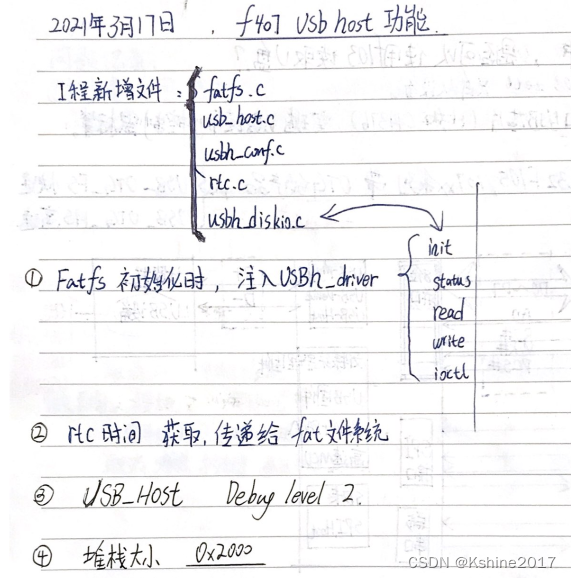 2021年3月17日 . f407 usb host 功能.
工程新增文件：
fatfs.c
usb_host.c
usbh_conf.c
rtc.c
usbh_diskio.c
① Fatfs 初始化时，注入USBh_driver
init
status
read
write
ioctl
② rtc时间 获取,传递给 fat文件系统
③ USB_HOST Debug level 2.
④ 堆栈大小 0x2000
CSDN @Kshine2017